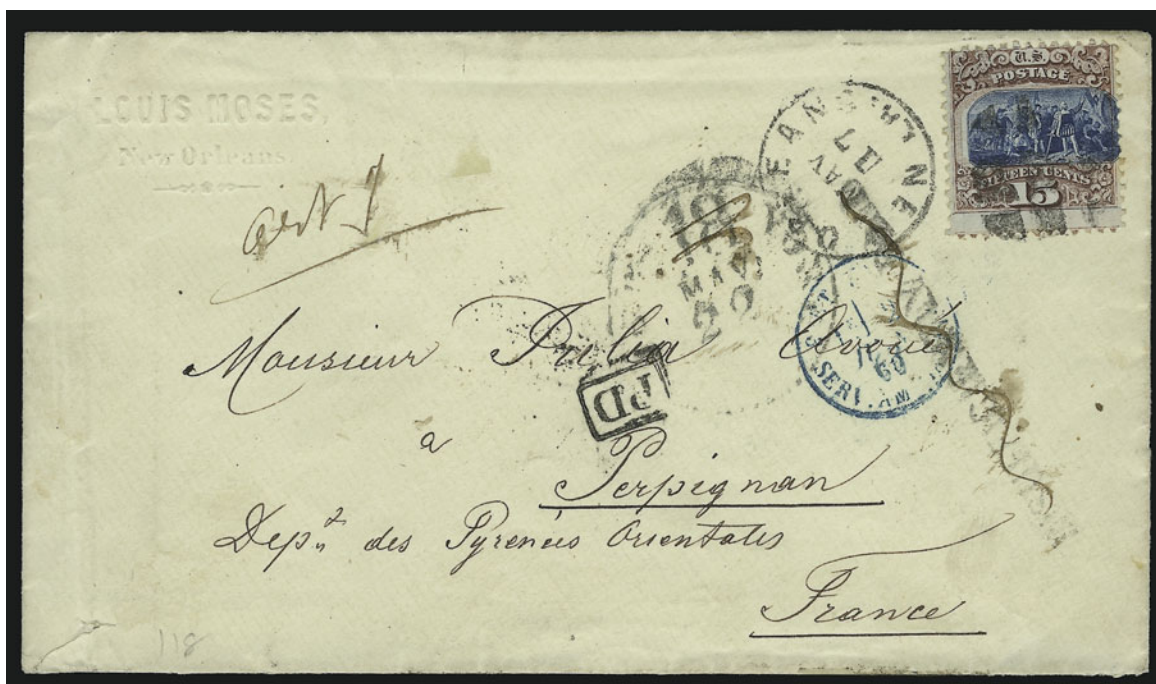 LOUIS MOSES,
New Orleans.
U.S.
POSTAGE
FIFTEEN CENTS
15
NEW ORLEANS LA.
MAY
17
MAY
20
SERV. AM
69
PD
Monsieur Julia Avoué
à
Perpignan
Dept des Pyrénées Orientales
France
118